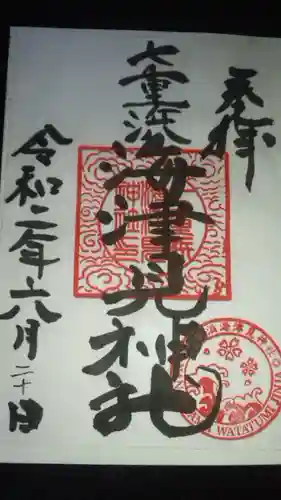 奉拝
七重浜
海津見神社
令和二年六月二十日
浜海津見神社
WATATUMI JINJ